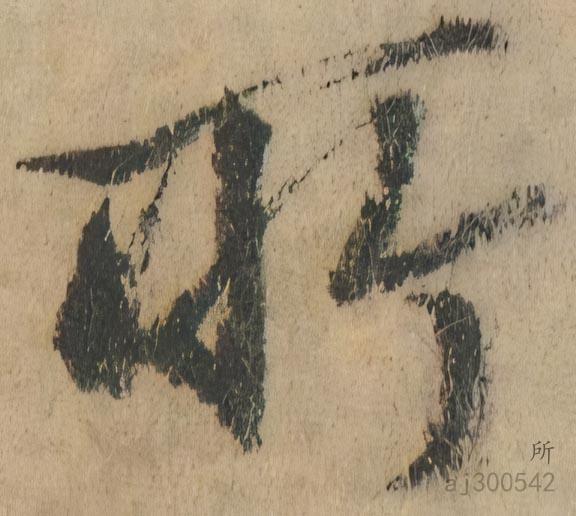 所
所
aj300542